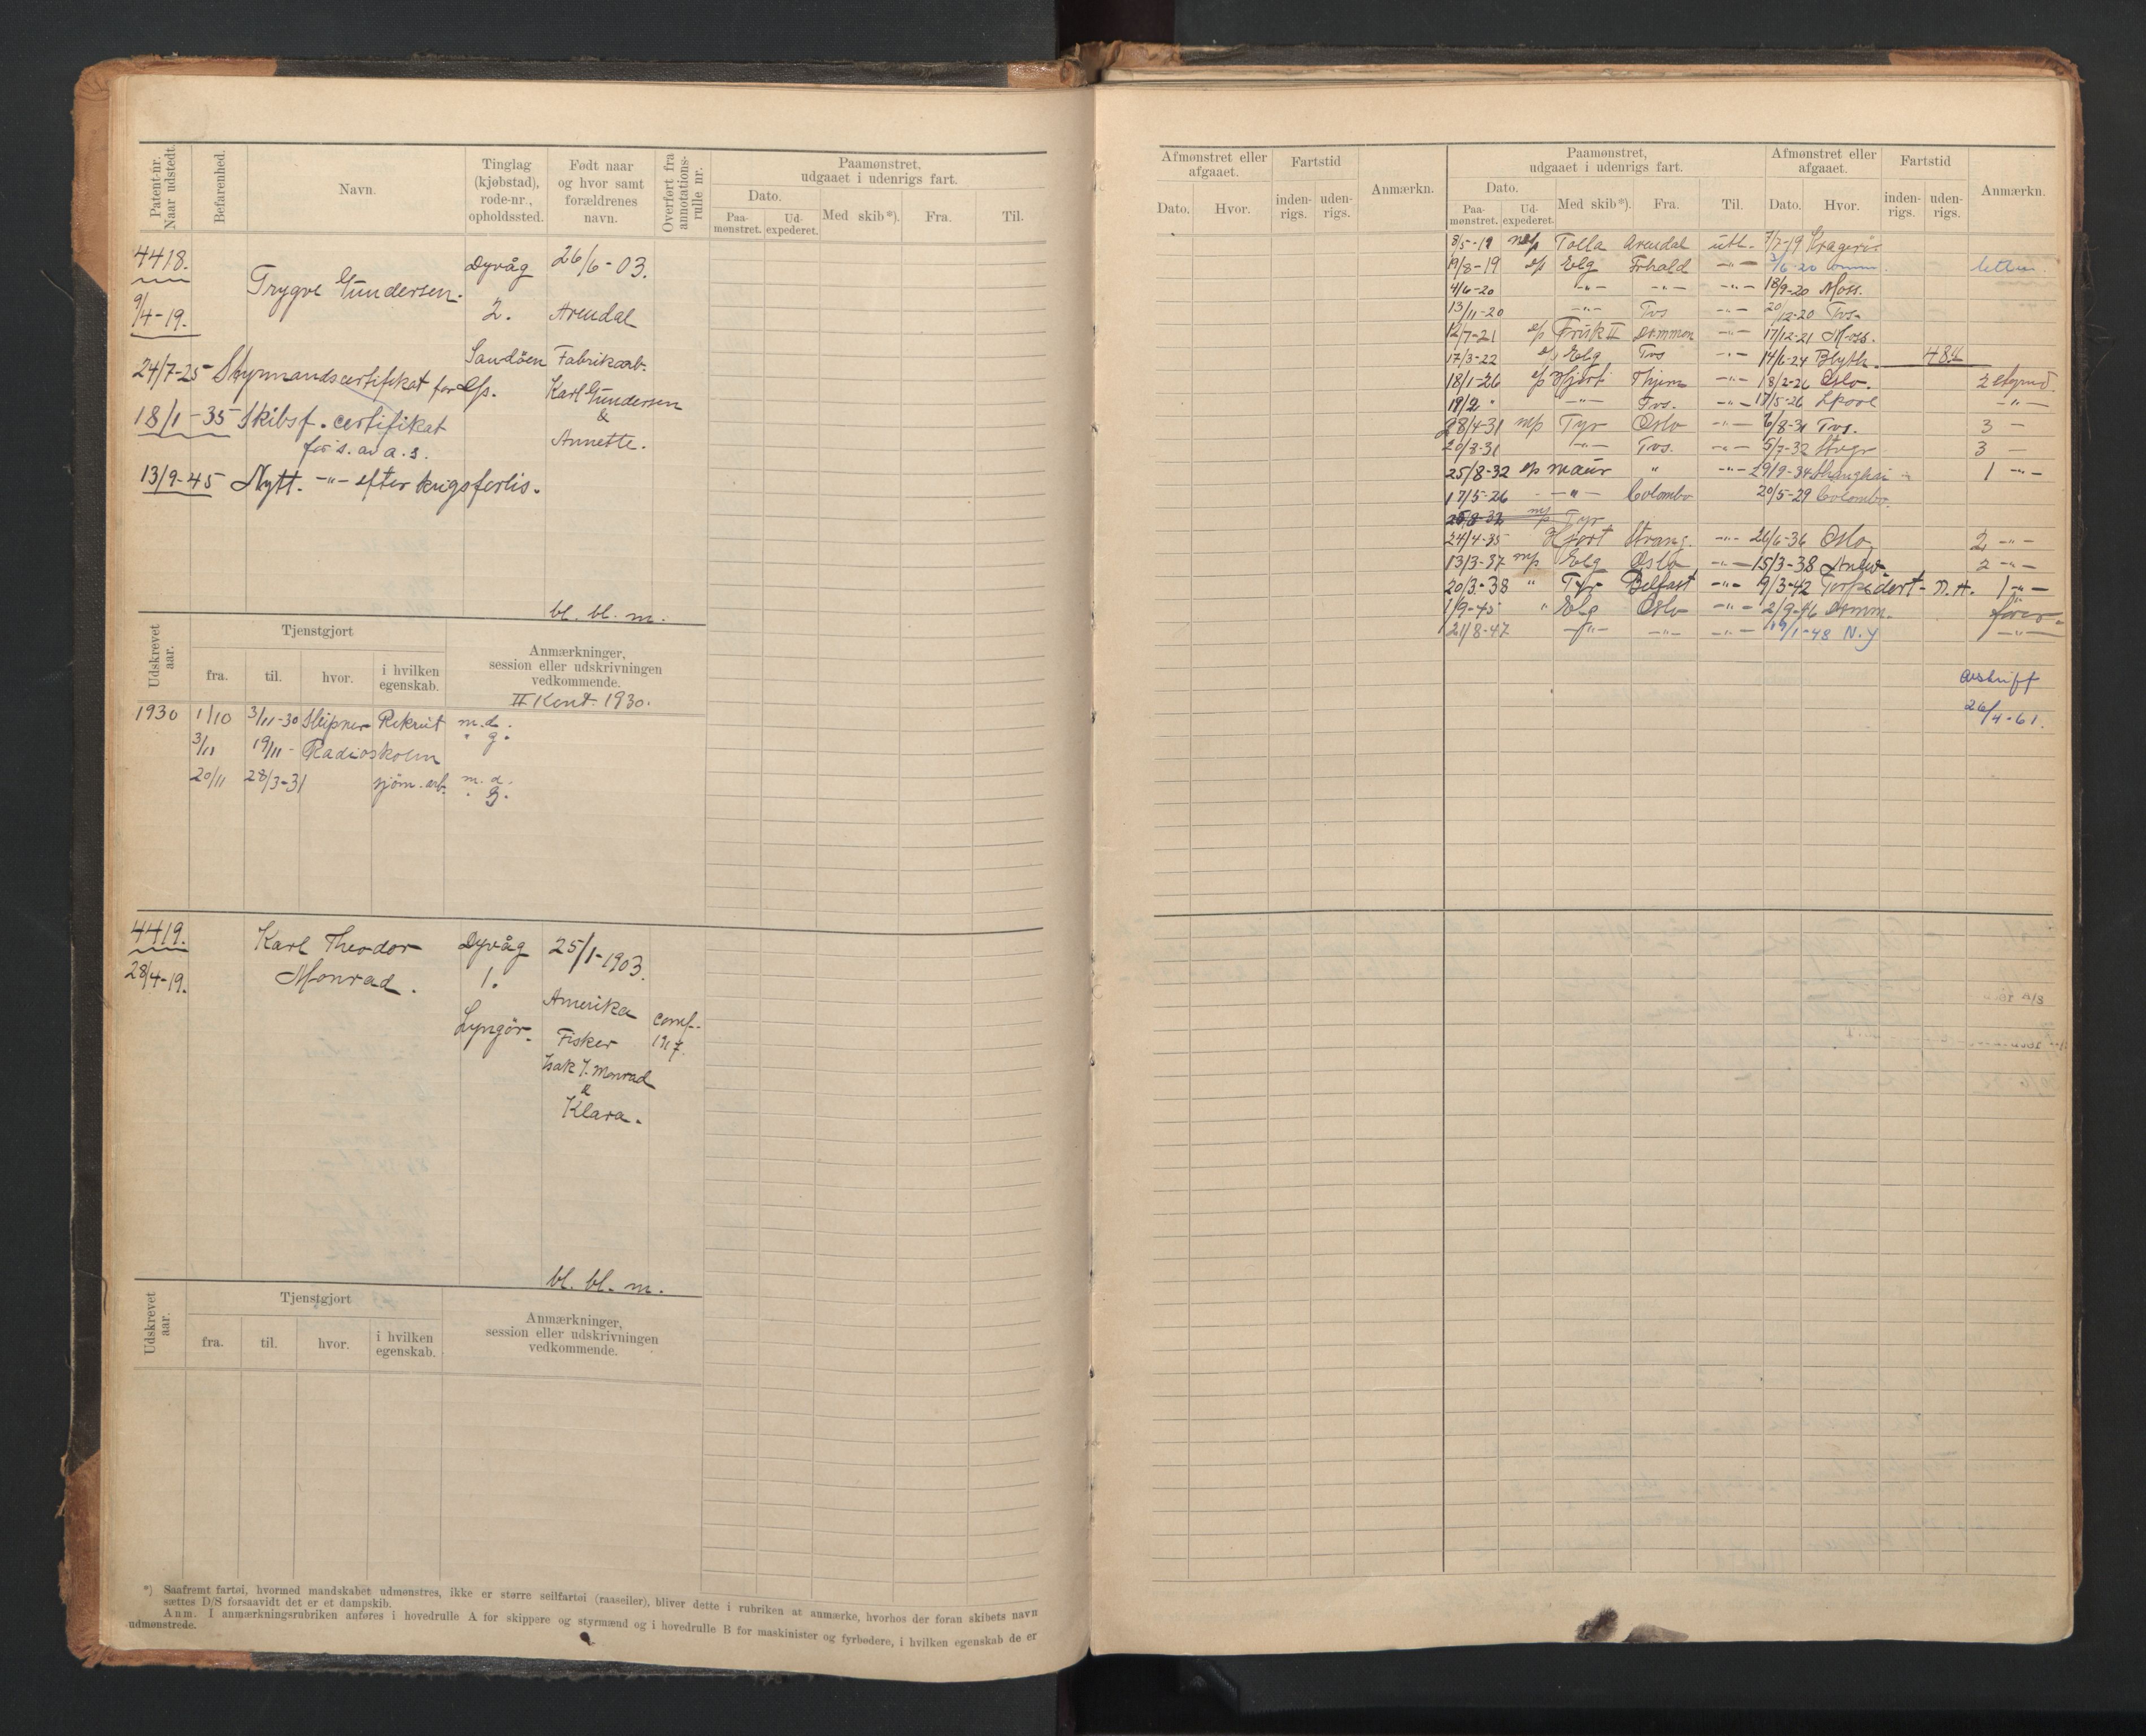 Patent-nr. Naar udstedt.
Befarenhed.
Navn.
Tinglag (kjøbstad), rode-nr., opholdssted.
Født naar og hvor samt forældrenes navn.
Overført fra annotations-rulle nr.
Paamønstret, udgaaet i udenrigs fart.
Dato.
Paa-mønstret.
Ud-expederet.
Med skib*).
Fra.
Til.
4418.
9/4-19.
Trygve Gundersen.
Dyvåg
2.
Sandöen
26/6-03.
Arendal
Fabrikarb.
Karl Gundersen
&
Annette.
24/7-25 Styrmandscertifikat for
18/1-35 Skibsf. certifikat
for s. av a. s.
13/9-45 Nytt. -"- efter krigsforlis.
bl. bl. m.
Udskrevet aar.
Tjenstgjort
fra.
til.
hvor.
i hvilken egenskab.
Anmærkninger, session eller udskrivningen vedkommende.
II Kont. 1930.
1930 1/10 3/11-30 Sleipner Rekrut m.d.
" g.
3/11 19/11- Radioskolen
20/11 28/3-31 sjöm. arb. m. d.
" g.
4419.
28/4-19.
Karl Theodor
Monrad.
Dyvåg
1.
Lyngör.
25/1-1903.
Amerika
Fisker
Isak J. Monrad
&
Klara.
conf.
1917.
bl. bl. m.
Udskrevet aar.
Tjenstgjort
fra.
til.
hvor.
i hvilken egenskab.
Anmærkninger, session eller udskrivningen vedkommende.
*) Saafremt fartøi, hvormed mandskabet udmønstres, ikke er større seilfartøi (raaseiler), bliver dette i rubriken at anmærke, hvorhos der foran skibets navn
sættes D/S forsaavidt det er et dampskib.
Anm. I anmærkningsrubriken anføres i hovedrulle A for skippere og styrmænd og i hovedrulle B for maskinister og fyrbødere, i hvilken egenskab de er
udmønstrede.
Afmønstret eller afgaaet.
Dato.
Hvor.
Fartstid
inden-rigs.
uden-rigs.
Anmærkn.
Paamønstret, udgaaet i udenrigs fart.
Dato.
Paa-mønstret.
Ud-expederet.
Med skib*).
Fra.
Til.
Afmønstret eller afgaaet.
Dato.
Hvor.
Fartstid
inden-rigs.
uden-rigs.
Anmærkn.
8/5-19 Tolla Arendal utl. 7/7-19 Kragerö
19/8-19 Elg Frhald -"- 3/6-20
4/6-20 -"- -"- -"- 18/9-20 Moss.
13/11-20 -"- Tvs -"- 20/12-20 Tvs.
12/7-21 Frisk II Drammen -"- 17/12-21 Moss.
17/3-22 Elg Tvs -"- 14/6-24 Blyth.
18/1-26 Hjort Thjem -"- 18/2-26 Oslo.
19/2 " -"- Tvs. -"- 17/5-26 Lpool -"-
28/4-31 Tyr Oslo -"- 6/8-31 Tvs. 3 -
20/8-31 -"- Tvs. -"- 5/7-32 3 -
25/8-32 Maur " -"- 29/9-34 Shanghai 1 -"-
17/5-26 -"- Colombo 20/5-29 Colombo.
25/8-32 Tyr
24/4-35 Hjort -"- 26/6-36 Oslo 2 -"-
13/3-37 Elg Oslo -"- 15/3-38 Antw. 2 -"-
20/3-38 " Tyr Belfast -"- 9/3-42 Torpedert - N. A. 1 -"-
1/9-45 " Elg Oslo -"- 2/9-46 förer.
21/8-47 -"- -"- -"- 19/1-48 N.Y -"-
avskrift
26/4-61.